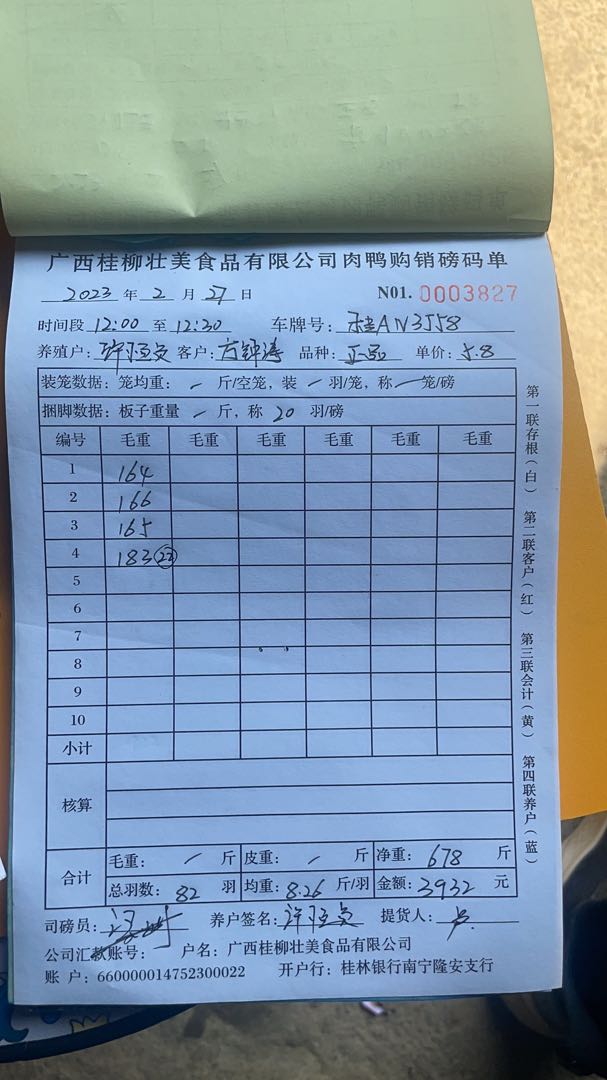 广西桂柳壮美食品有限公司肉鸭购销磅码单
2023 年 2 月 27 日 N01. 0003827
时间段 12:00 至 12:30 车牌号: 桂AN3J58
养殖户: 客户: 方钟涛 品种: 正品 单价: 5.8
装笼数据: 笼均重: — 斤/空笼, 装 — 羽/笼, 称 — 笼/磅
捆脚数据: 板子重量 — 斤, 称 20 羽/磅
编号 毛重 毛重 毛重 毛重 毛重 毛重
1 164
2 166
3 165
4 183 22
5
6
7
8
9
10
小计
核算
合计 毛重: — 斤 皮重: — 斤 净重: 678 斤
总羽数: 82 羽 均重: 8.26 斤/羽 金额: 3932 元
司磅员: 养户签名: 提货人:
公司汇款账号: 户名: 广西桂柳壮美食品有限公司
账户: 660000014752300022 开户行: 桂林银行南宁隆安支行
第一联存根(白) 第二联客户(红) 第三联会计(黄) 第四联养户(蓝)